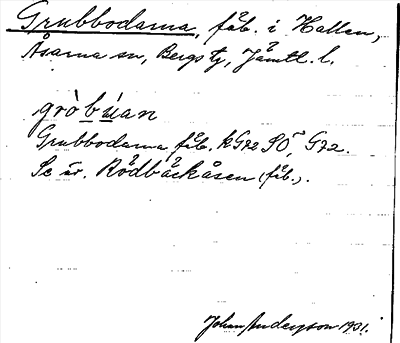 Grubbodarna, fäb. i Hallen,
Åsarna sn, Bergs tg, Jämtl. l.
gròbúan
Grubbodarna fäb. kG72 SÖ, G72.
Se är. Rödbäckåsen (fäb.).
Johan Anderzson 1931.